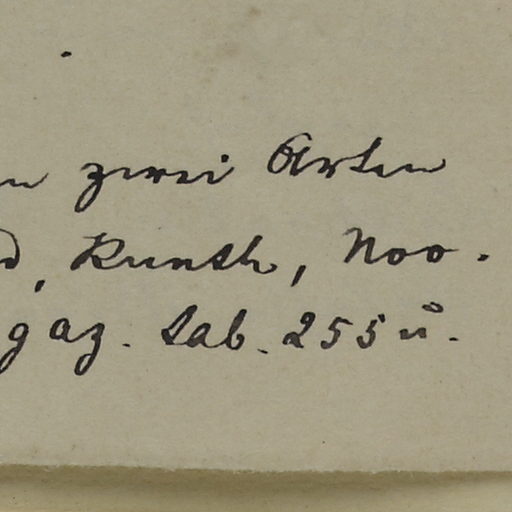 zwei Arten
, Kunth, Noo.
gaz. tab. 255 ů.